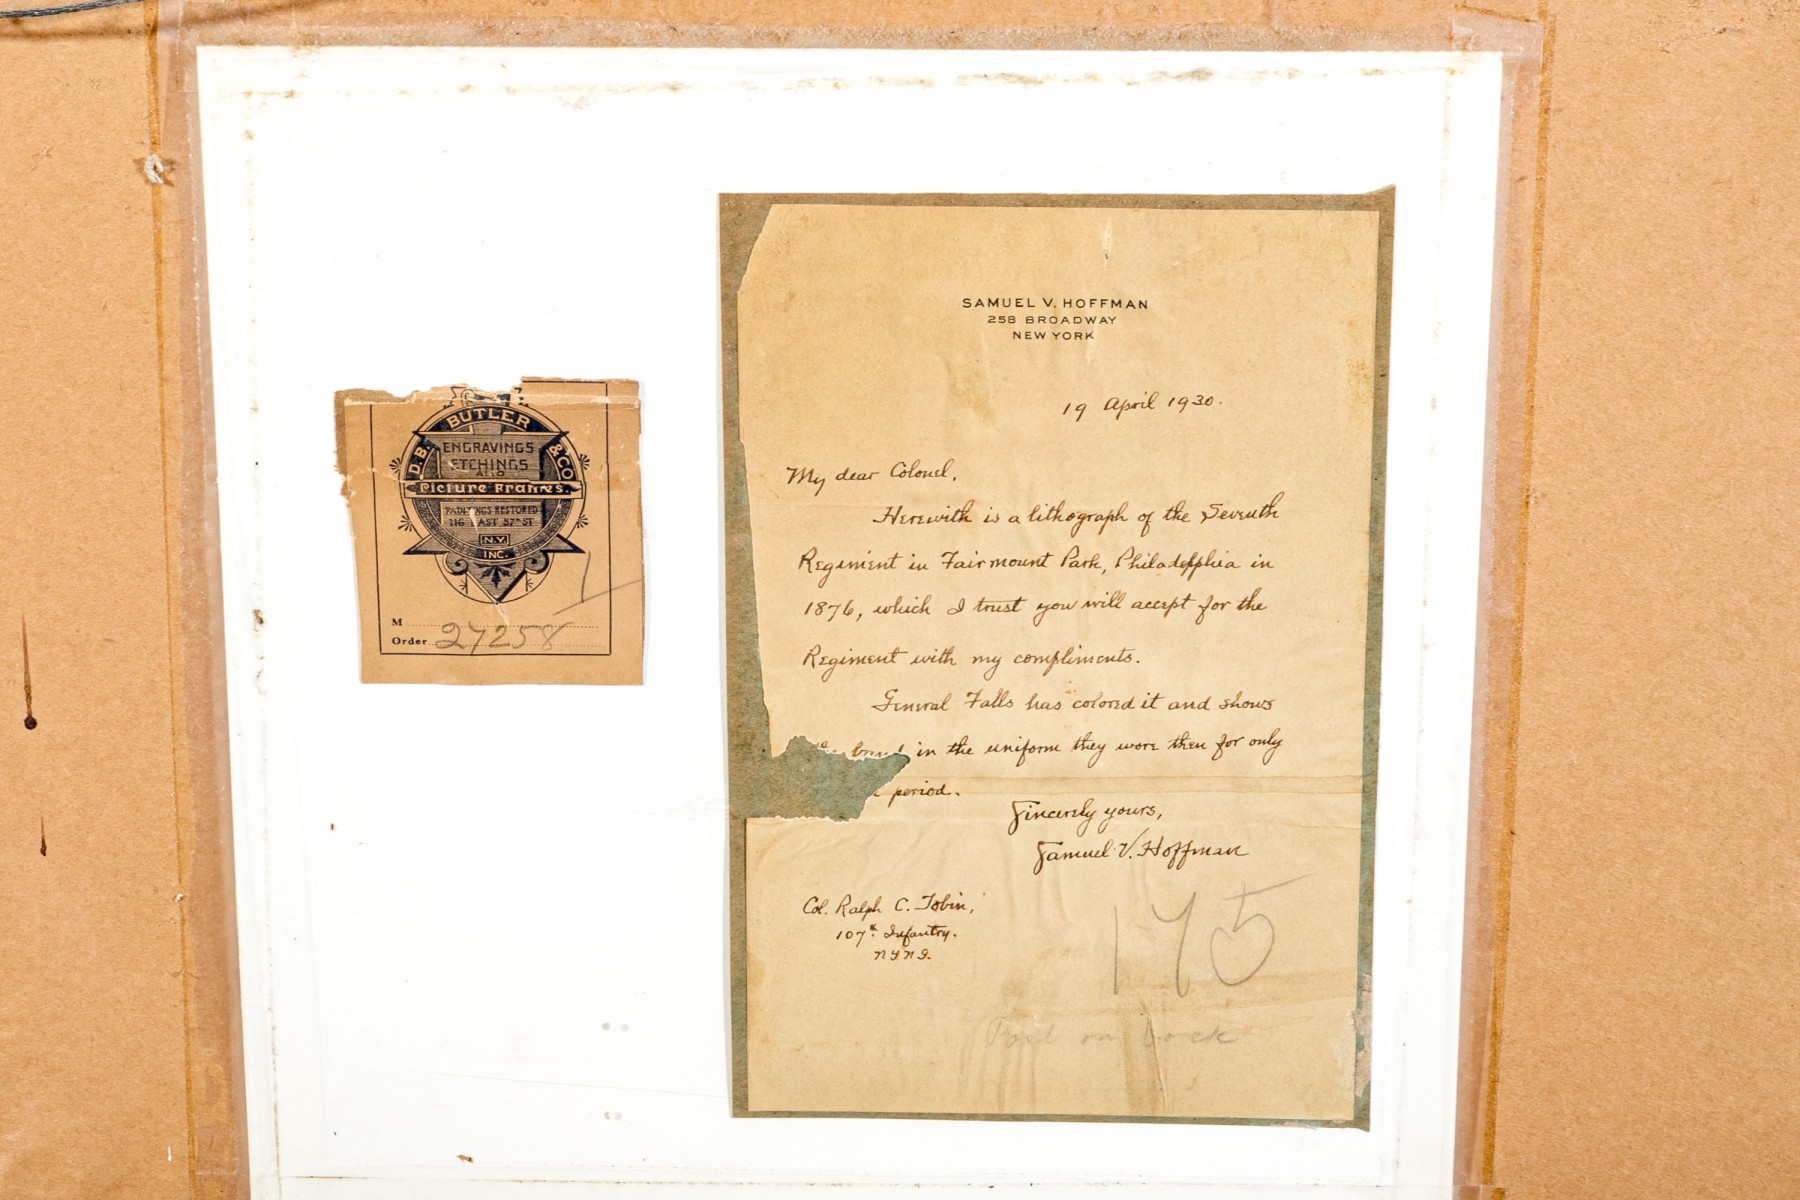 D.B. BUTLER & CO
ENGRAVINGS
ETCHINGS
AND
Picture Frames.
PAINTINGS RESTORED
116 EAST 57th ST
N.Y.
INC.
1
M
Order 27258
SAMUEL V. HOFFMAN
258 BROADWAY
NEW YORK
19 April 1930.
My dear Colonel,
Herewith is a lithograph of the Seventh
Regiment in Fairmount Park, Philadelphia in
1876, which I trust you will accept for the
Regiment with my compliments.
General Falls has colored it and shows
the band in the uniform they wore then for only
period.
Sincerely yours,
Samuel V. Hoffman
Col. Ralph C. Tobin,
107th Infantry.
NYNG.
175
on back